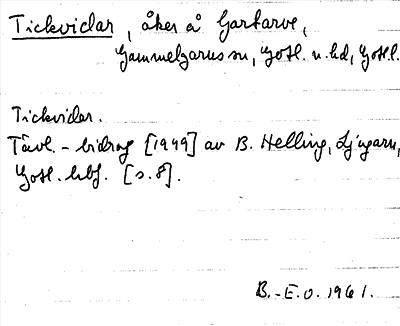 Tickvidar, åker å Garkarve,
Gammelgarns sn, Gotl. n. hd, Gotl. l.
Tickvidar.
Tävl.-bidrag [1949] av B. Helling, Ljugarn,
Gotl. hbf. [s. 8].
B.-E.O. 1961.